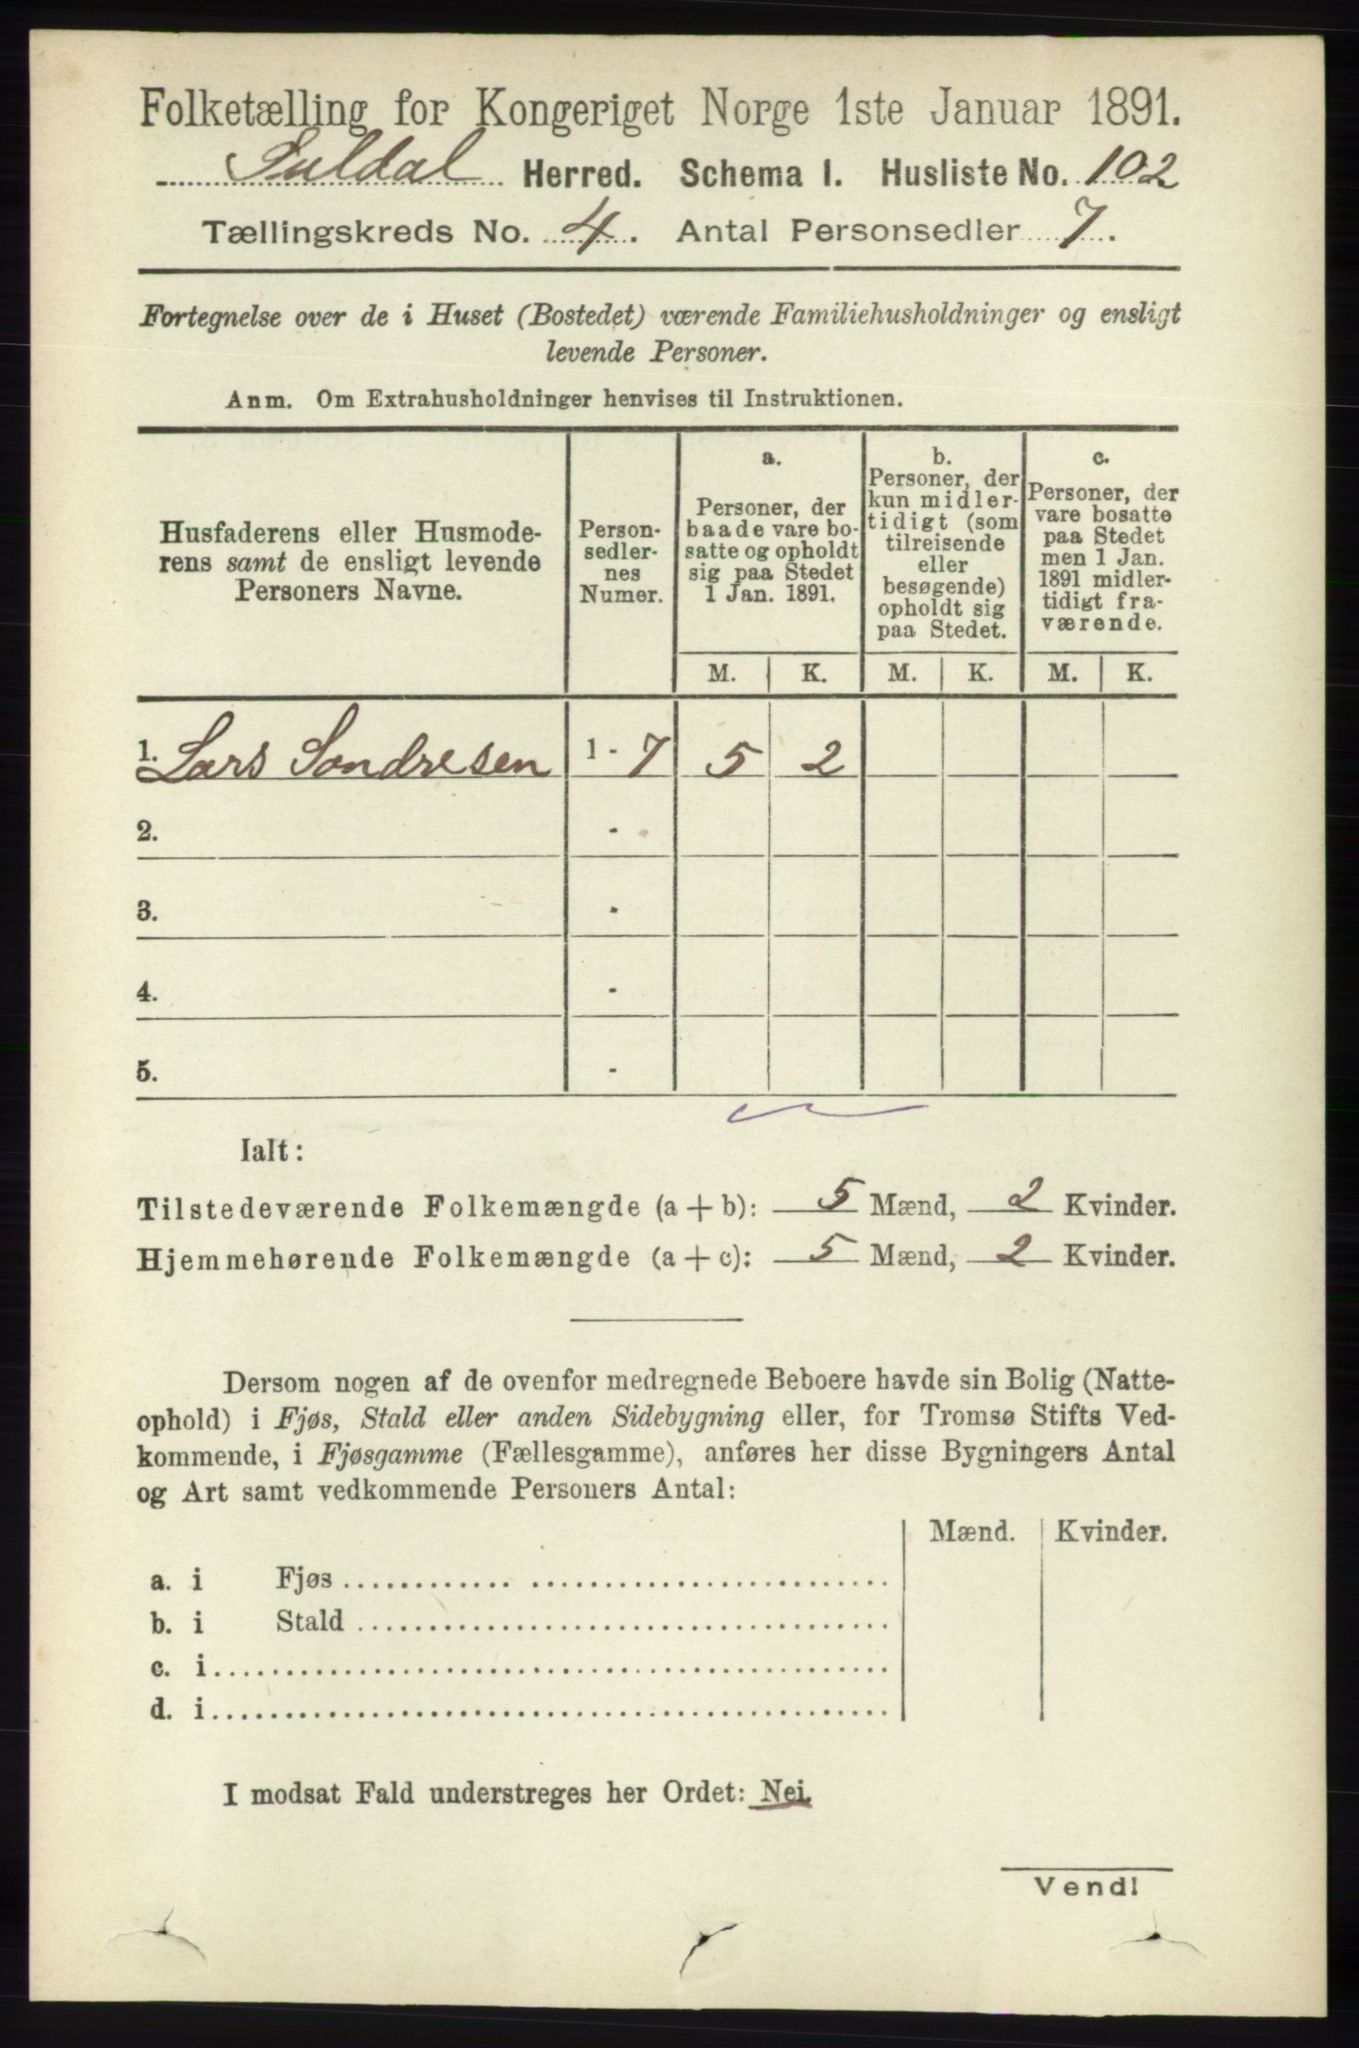 Folketælling for Kongeriget Norge 1ste Januar 1891.
Suldal Herred. Schema I. Husliste No. 102
Tællingskreds No. 4. Antal Personsedler 7.
Fortegnelse over de i Huset (Bostedet) værende Familiehusholdninger og ensligt
levende Personer.
Anm. Om Extrahusholdninger henvises til Instruktionen.
Husfaderens eller Husmode-
rens samt de ensligt levende
Personers Navne.
Person-
sedler-
nes
Numer.
a.
Personer, der
baade vare bo-
satte og opholdt
sig paa Stedet
1 Jan. 1891.
b.
Personer, der
kun midler-
tidigt (som
tilreisende
eller
besøgende)
opholdt sig
paa Stedet.
c.
Personer, der
vare bosatte
paa Stedet
men 1 Jan.
1891 midler-
tidigt fra-
værende.
M. K. M. K. M. K.
1. Lars Sondresen 1 - 7 5 2
2. -
3. -
4. -
5. -
Ialt:
Tilstedeværende Folkemængde (a + b): 5 Mænd, 2 Kvinder.
Hjemmehørende Folkemængde (a + c): 5 Mænd, 2 Kvinder.
Dersom nogen af de ovenfor medregnede Beboere havde sin Bolig (Natte-
ophold) i Fjøs, Stald eller anden Sidebygning eller, for Tromsø Stifts Ved-
kommende, i Fjøsgamme (Fællesgamme), anføres her disse Bygningers Antal
og Art samt vedkommende Personers Antal:
Mænd. Kvinder.
a. i Fjøs
b. i Stald
c. i
d. i
I modsat Fald understreges her Ordet: Nei.
Vend!